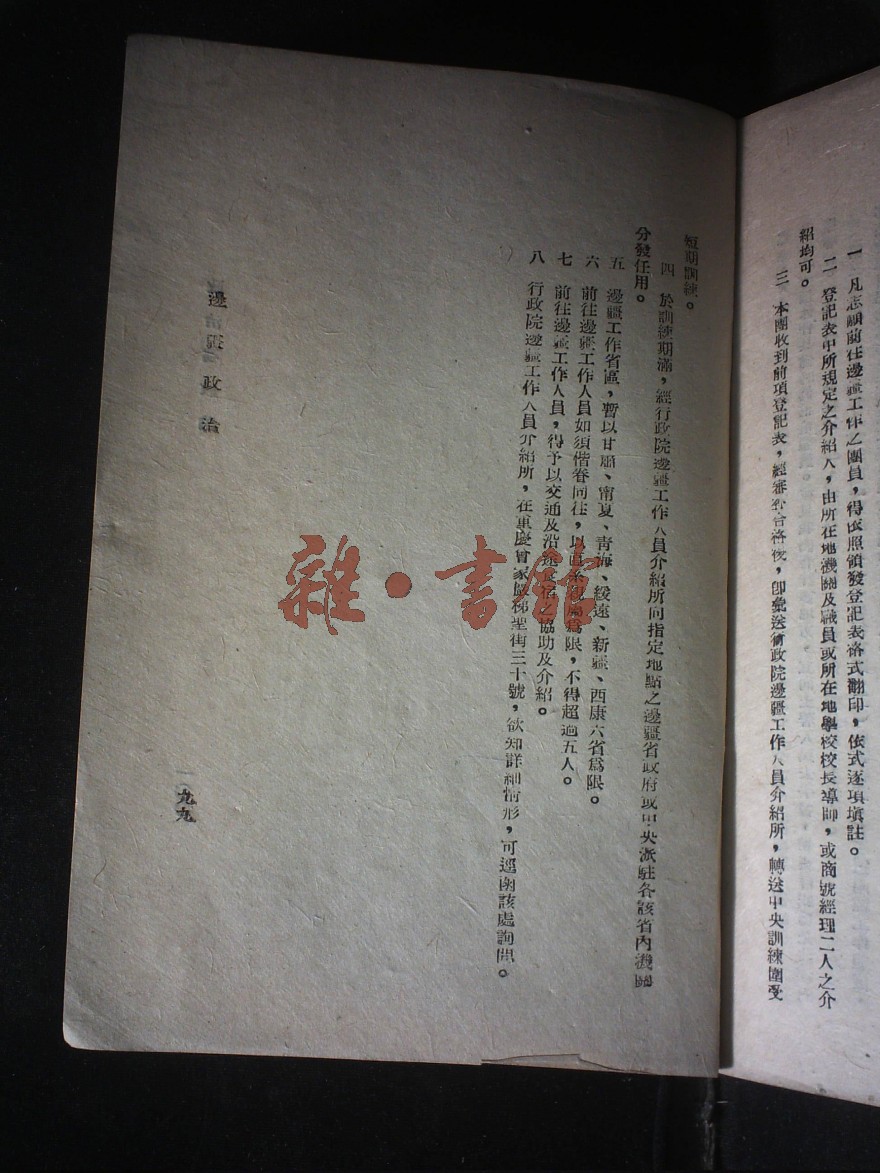 一　凡志願前往邊疆工作之團員，得依照頒發登記表格式翻印，依式逐項填註。
二　登記表中所規定之介紹人，由所在地機關及職員或所在地學校校長導師，或商號經理二人之介
紹均可。
三　本團收到前項登記表，經審查合格後，卽彙送行政院邊疆工作人員介紹所，轉送中央訓練團受
短期訓練。
四　於訓練期滿，經行政院邊疆工作人員介紹所向指定地點之邊疆省政府或中央派駐各該省內機關
分發任用。
五　邊疆工作省區，暫以甘肅、甯夏、青海、綏遠、新疆、西康六省爲限。
六　前往邊疆工作人員如須偕眷同往，以直系親屬爲限，不得超過五人。
七　前往邊疆工作人員，得予以交通及沿途食宿之協助及介紹。
八　行政院邊疆工作人員介紹所，在重慶曾家岩梯聖街三十號，欲知詳細情形，可逕函該處詢問。
邊疆政治
一九九
雜·書館